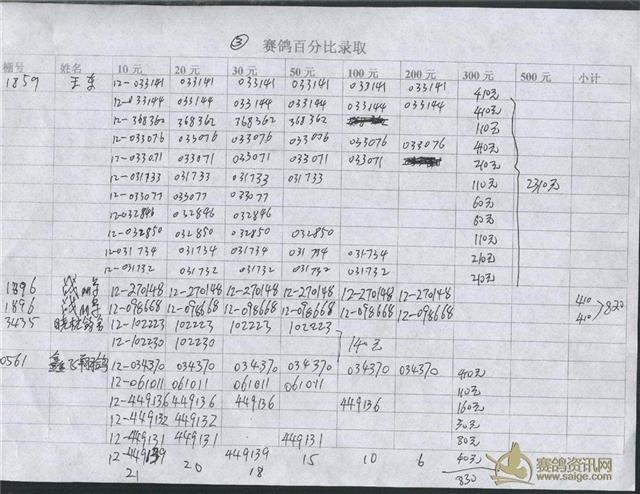 ③ 赛鸽百分比录取
棚号 姓名 10 元 20 元 30 元 50 元 100 元 200 元 300 元 500 元 小计
1859 王东 12-033141 033141 033141 033141 033141 033141 410元
12-033144 033144 033144 033144 033144 033144 410元
12-368362 368362 368362 368362 110元
12-033076 033076 033076 033076 033076 033076 410元
12-033071 033071 033071 033071 033071 210元
12-031733 031733 031733 031733 110元 2310元
12-033077 033077 033077 60元
12-032846 032846 032846 60元
12-032850 032850 032850 032850 110元
12-031734 031734 031734 031734 031734 210元
12-031732 031732 031732 031732 031732 210元
1896 12-270148 12-270148 12-270148 12-270148 12-270148 12-270148 410
1896 12-098668 12-098668 12-098668 12-098668 12-098668 12-098668 410 820
3435 12-102223 102223 102223 102223
12-102230 102230 140元
0561 12-034370 034370 034370 034370 034370 034370 410元
12-061011 061011 061011 061011 110元
12-449136 449136 449136 449136 160元
12-449132 449132 30元
12-449131 449131 449131 80元
12-449139 449139 40元
21 20 18 15 10 6 830
赛鸽资讯网
www.saige.com